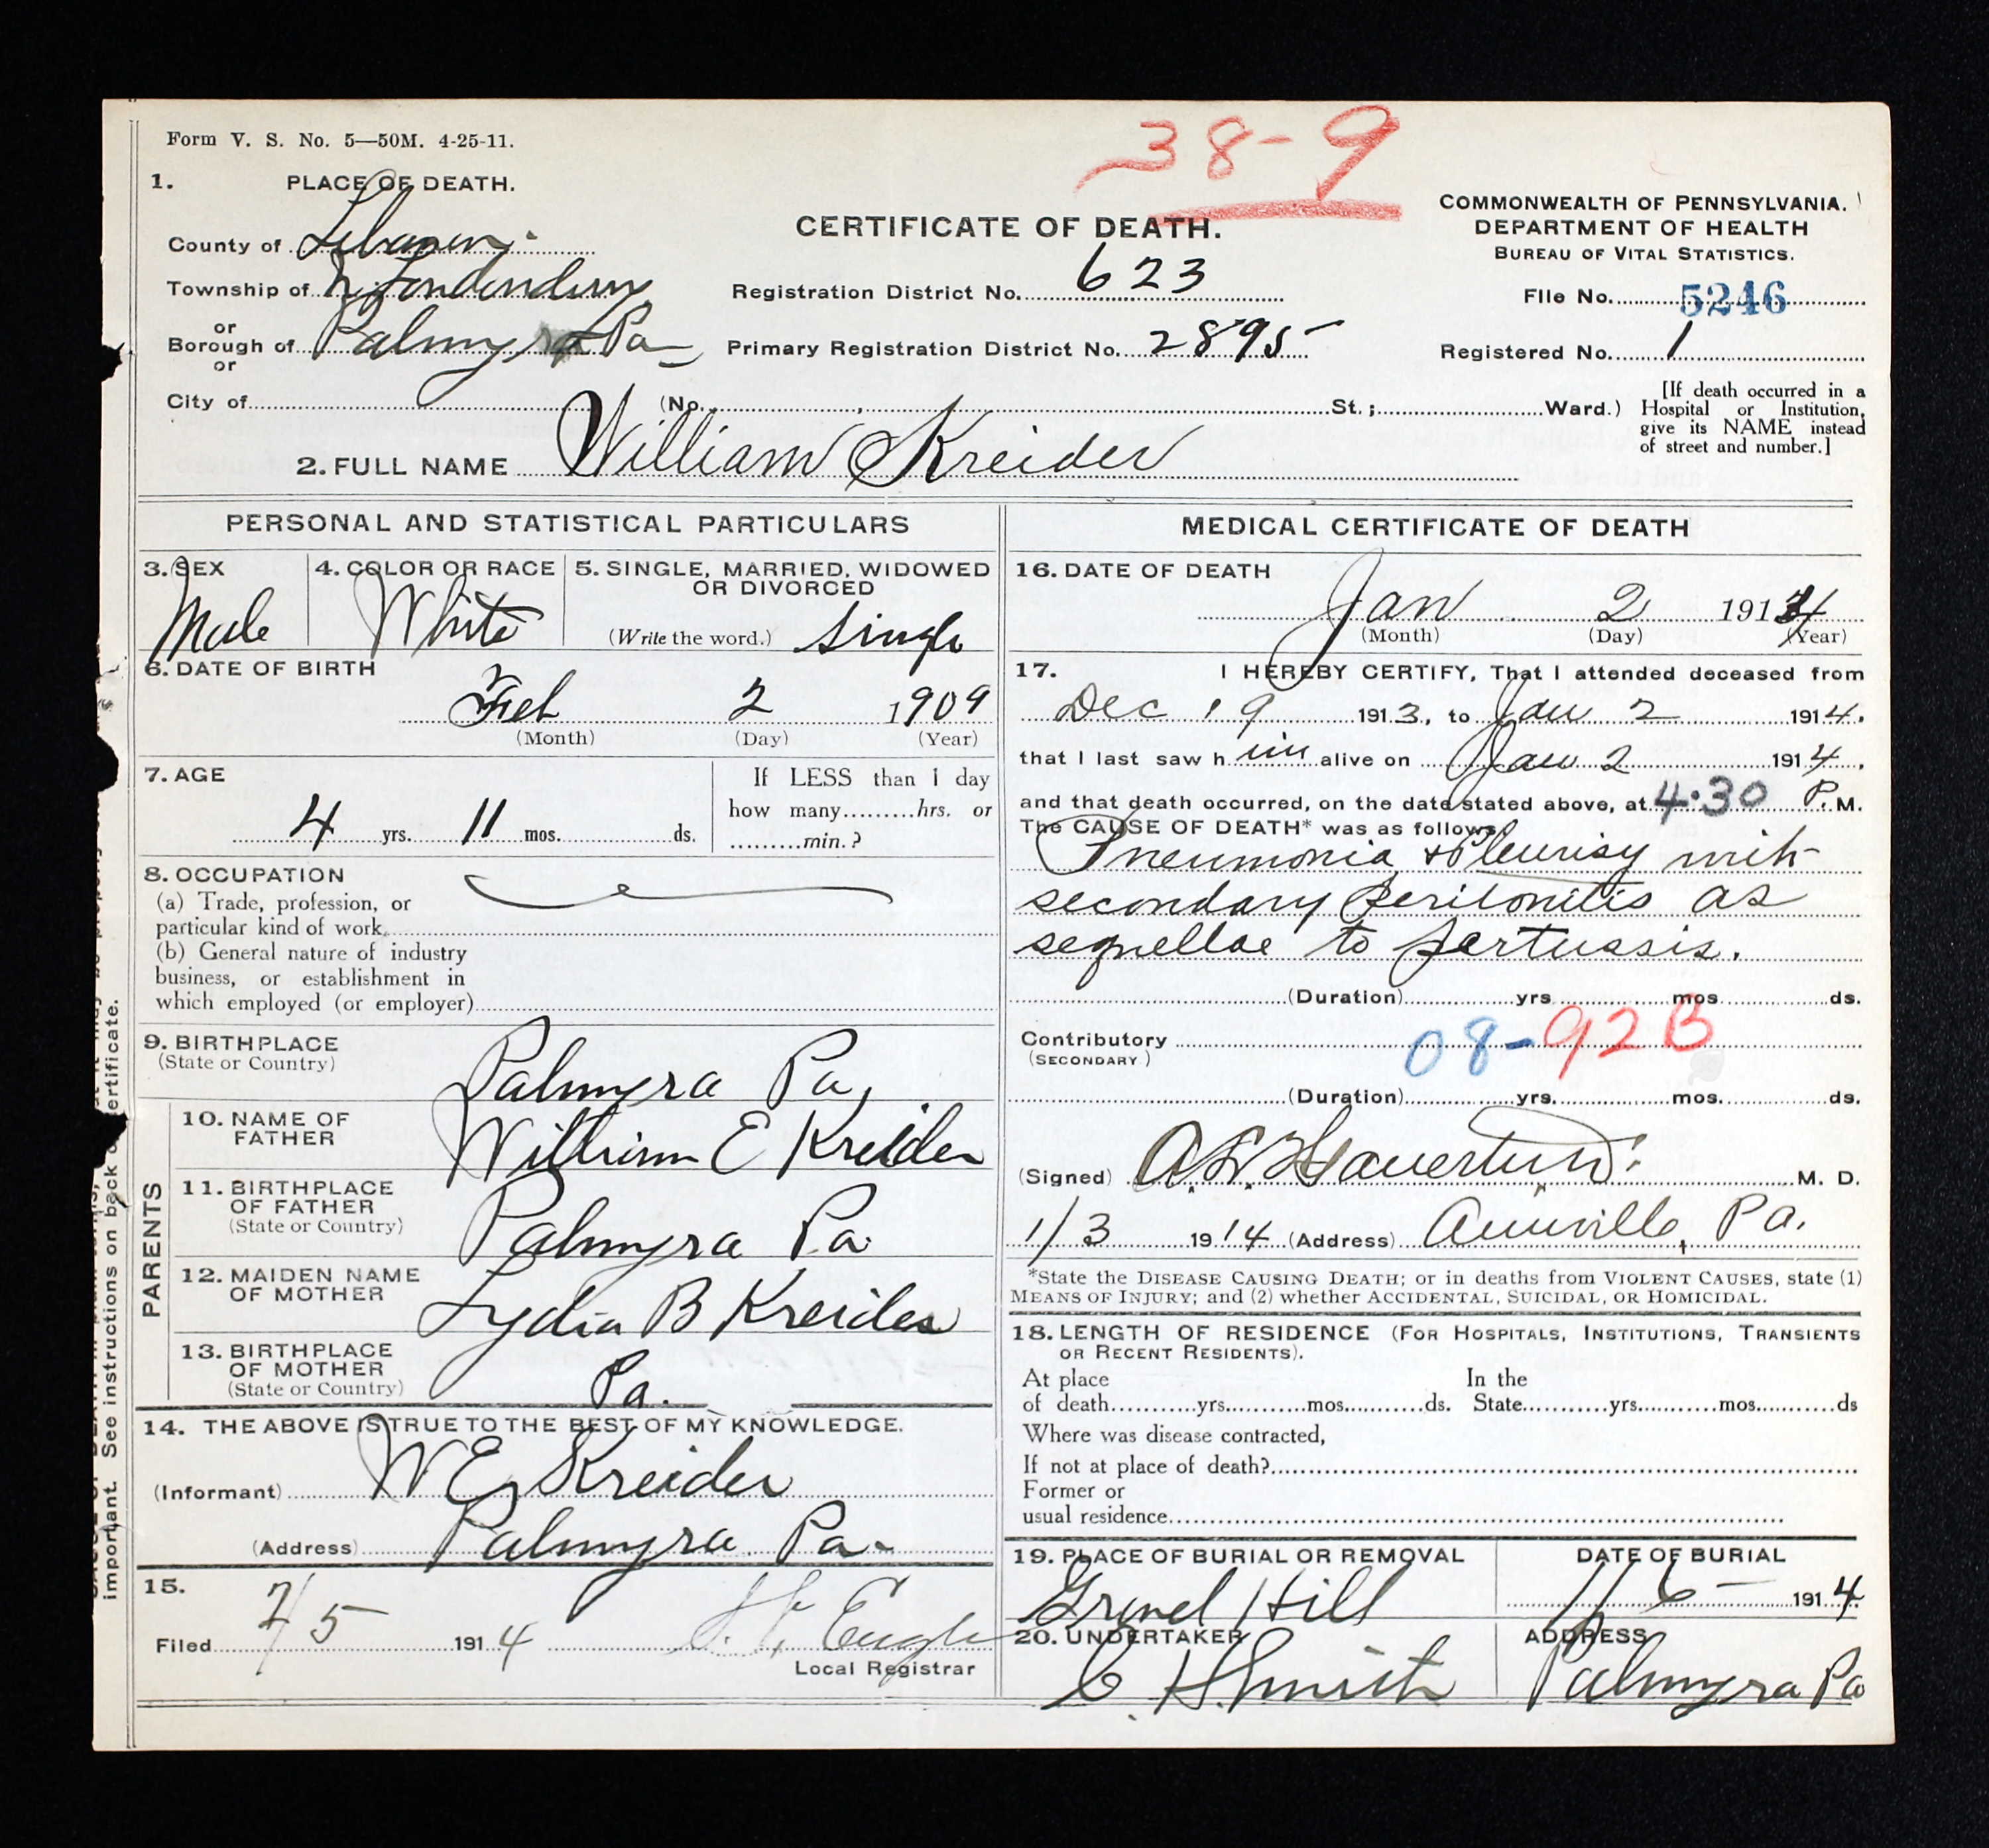 38-9
Form V. S. No. 5—50M. 4-25-11.
1. PLACE OF DEATH.
County of Lebanon
Township of N. Londonderry
or
Borough of Palmyra Pa
or
City of
CERTIFICATE OF DEATH.
Registration District No. 623
Primary Registration District No. 2895
(No. , St.; Ward.)
COMMONWEALTH OF PENNSYLVANIA.
DEPARTMENT OF HEALTH
BUREAU OF VITAL STATISTICS.
File No. 5246
Registered No. 1
[If death occurred in a
Hospital or Institution,
give its NAME instead
of street and number.]
2. FULL NAME William Kreider
PERSONAL AND STATISTICAL PARTICULARS
3. SEX
Male
4. COLOR OR RACE
White
5. SINGLE, MARRIED, WIDOWED
OR DIVORCED
(Write the word.) Single
6. DATE OF BIRTH
Feb 2 1909
(Month) (Day) (Year)
7. AGE
4 yrs. 11 mos. ds.
If LESS than 1 day
how many hrs. or
min.?
8. OCCUPATION
(a) Trade, profession, or
particular kind of work
(b) General nature of industry
business, or establishment in
which employed (or employer)
9. BIRTHPLACE
(State or Country)
Palmyra Pa,
PARENTS
10. NAME OF
FATHER
William E Kreider
11. BIRTHPLACE
OF FATHER
(State or Country)
Palmyra Pa.
12. MAIDEN NAME
OF MOTHER
Lydia B Kreider
13. BIRTHPLACE
OF MOTHER
(State or Country)
Pa.
14. THE ABOVE IS TRUE TO THE BEST OF MY KNOWLEDGE.
(Informant) W E Kreider
(Address) Palmyra Pa.
15.
Filed 5 1914 Engle
Local Registrar
MEDICAL CERTIFICATE OF DEATH
16. DATE OF DEATH
Jan 2 1914
(Month) (Day) (Year)
17. I HEREBY CERTIFY, That I attended deceased from
Dec 19 1913, to Jan 2 1914.
that I last saw him alive on Jan 2 1914,
and that death occurred, on the date stated above, at 4:30 P. M.
The CAUSE OF DEATH* was as follows:
Pneumonia & Pleurisy with
secondary peritonitis as
sequellae to pertussis.
(Duration) yrs. mos. ds.
Contributory 08-92B
(SECONDARY)
(Duration) yrs. mos. ds.
(Signed) M. D.
1/3 1914 (Address) Annville, Pa.
*State the DISEASE CAUSING DEATH; or in deaths from VIOLENT CAUSES, state (1)
MEANS OF INJURY; and (2) whether ACCIDENTAL, SUICIDAL, OR HOMICIDAL.
18. LENGTH OF RESIDENCE (FOR HOSPITALS, INSTITUTIONS, TRANSIENTS
OR RECENT RESIDENTS).
At place In the
of death yrs. mos. ds. State yrs. mos. ds
Where was disease contracted,
If not at place of death?
Former or
usual residence
19. PLACE OF BURIAL OR REMOVAL
Gravel Hill
DATE OF BURIAL
1/6 1914
20. UNDERTAKER
C H Smith
ADDRESS
Palmyra Pa
important. See instructions on back of certificate.